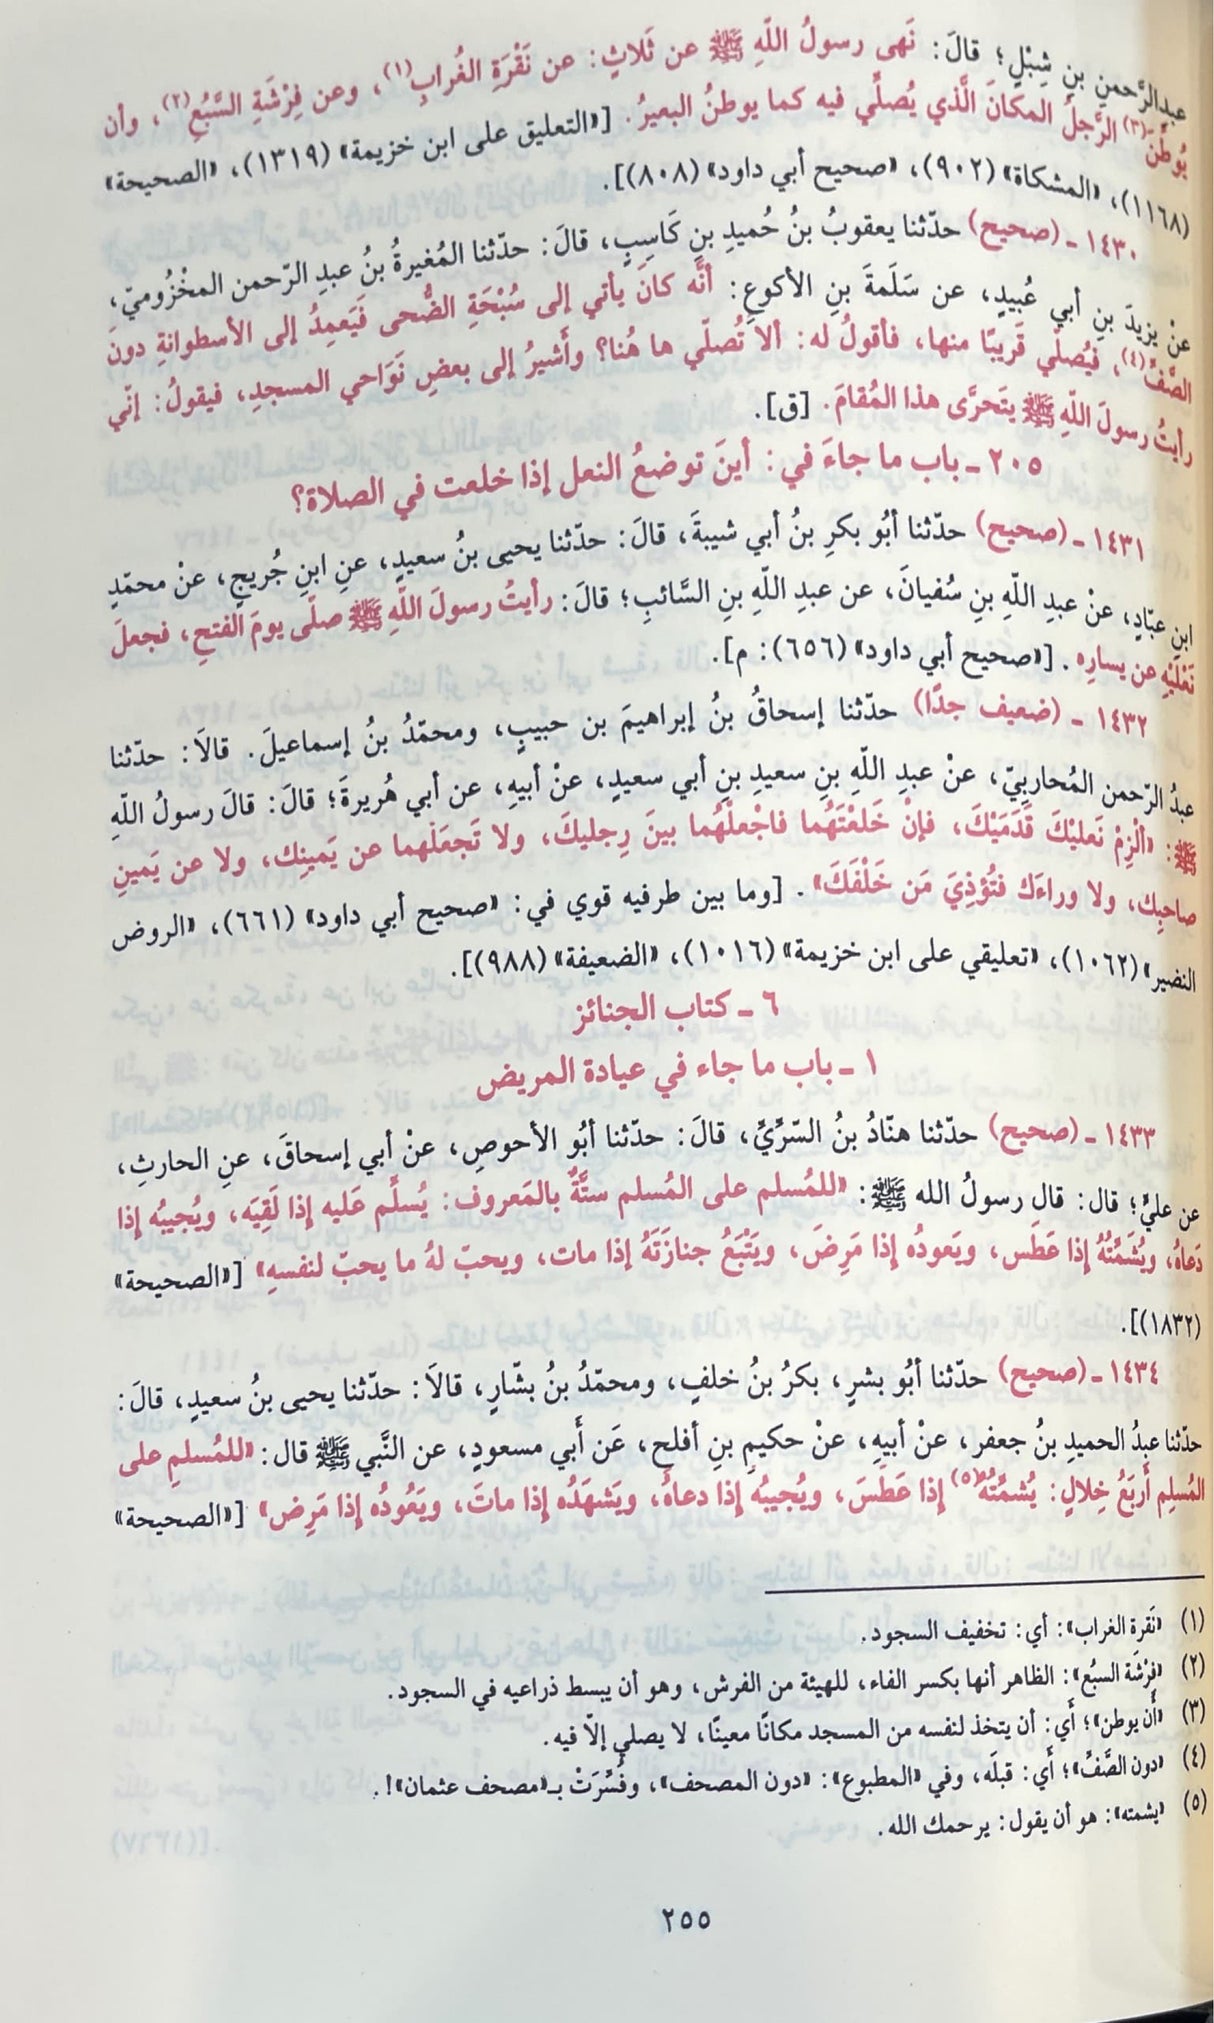 عبدالرَّحمنِ بنِ شِبْلٍ؛ قالَ: نَهى رسولُ اللّهِ ﷺ عن ثَلاثٍ: عن نَقْرَةِ الغُرابِ(١)، وعن فِرْشَةِ السَّبُعِ(٢)، وأن
يُوطِّنَ(٣) الرَّجلُ المكانَ الَّذي يُصلِّي فيه كما يوطنُ البعيرُ. [«التعليق على ابن خزيمة» (١٣١٩)، «الصحيحة»
(١١٦٨)، «المشكاة» (٩٠٢)، «صحيح أبي داود» (٨٠٨)].
١٤٣٠ ـ (صحيح) حدّثنا يعقوبُ بنُ حُميدِ بنِ كَاسِبٍ، قالَ: حدّثنا المُغيرةُ بنُ عبدِ الرّحمن المخْزُوميّ،
عنْ يزيدَ بنِ أبي عُبيدٍ، عن سَلَمَةَ بنِ الأكوعِ: أنَّه كانَ يأتي إلى سُبْحَةِ الضُّحى فَيَعمِدُ إلى الأسطوانةِ دونَ
الصَّفِّ(٤)، فيُصلّي قَريبًا منها، فأقولُ له: ألا تُصلّي ها هُنا؟ وأَشيرُ إلى بعضِ نَوَاحي المسجدِ، فيقولُ: إنّي
رأيتُ رسولَ اللّهِ ﷺ يتَحرَّى هذا المُقامَ. [ق].
٢٠٥ ـ باب ما جاءَ في: أينَ توضعُ النعل إذا خلعت في الصلاة؟
١٤٣١ ـ (صحيح) حدّثنا أبُو بكرِ بنُ أبي شيبةَ، قالَ: حدّثنا يحيى بنُ سعيدٍ، عنِ ابنِ جُريجٍ، عنْ محمّدِ
ابنِ عبّادٍ، عنْ عبدِ اللّهِ بنِ سُفيانَ، عن عبدِ اللّهِ بنِ السَّائبِ؛ قالَ: رأيتُ رسولَ اللّهِ ﷺ صلّى يومَ الفتحِ، فجعلَ
نَعْلَيْهِ عن يسارِه. [«صحيح أبي داود» (٦٥٦): م].
١٤٣٢ ـ (ضعيف جدًا) حدّثنا إسحاقُ بنُ إبراهيمَ بن حبيبٍ، ومحمّدُ بنُ إسماعيلَ. قالَا: حدّثنا
عبدُ الرّحمن المُحاربيّ، عنْ عبدِ اللّهِ بنِ سعيدِ بنِ أبي سعيدٍ، عنْ أبيهِ، عن أبي هُريرةَ؛ قالَ: قالَ رسولُ اللّهِ
ﷺ: «ألْزِمْ نَعليْكَ قَدَمَيْكَ، فإنْ خَلَعْتَهُما فاجْعلْهُما بينَ رِجليكَ، ولا تَجعَلْهما عن يَمينِك، ولا عن يَمينِ
صاحبِك، ولا وراءَك فتُؤذِيَ مَن خَلْفَكَ». [وما بين طرفيه قوي في: «صحيح أبي داود» (٦٦١)، «الروض
النضير» (١٠٦٢)، «تعليقي على ابن خزيمة» (١٠١٦)، «الضعيفة» (٩٨٨)].
٦ ـ كتاب الجنائز
١ ـ باب ما جاء في عيادة المريض
١٤٣٣ ـ (صحيح) حدّثنا هنّادُ بنُ السّرِّيِّ، قالَ: حدّثنا أبُو الأحوصِ، عنْ أبي إسحاقَ، عنِ الحارثِ،
عن عليٍّ؛ قال: قال رسولُ الله ﷺ: «للمُسلم على المُسلم ستَّةٌ بالمَعروف: يُسلِّم عَليه إذا لَقِيَه، ويُجيبُه إذا
دَعاهُ، ويُشَمِّتُهُ إذا عَطَس، ويَعودُه إذا مَرِضَ، ويَتْبَعُ جنازَتَهُ إذا مات، ويحبّ لهُ ما يحبّ لنفسهِ» [«الصحيحة»
(١٨٣٢)].
١٤٣٤ ـ (صحيح) حدّثنا أبُو بشرٍ، بكرُ بنُ خلفٍ، ومحمّدُ بنُ بشّارٍ، قالَا: حدّثنا يحيى بنُ سعيدٍ، قالَ:
حدّثنا عبدُ الحميدِ بنُ جعفر، عنْ أبيهِ، عنْ حكيمِ بنِ أفلحِ، عَن أبي مسعودٍ، عن النَّبي ﷺ قال: «للمُسلمِ على
المُسلِمِ أَربَعُ خِلالٍ: يُشمِّتُهُ(٥) إذا عَطَسَ، ويُجيبُه إذا دعاهُ، ويَشهَدُه إذا ماتَ، ويَعُودُه إذا مَرِض» [«الصحيحة»
(١) «نَقرة الغراب»: أي: تخفيف السجود.
(٢) «فِرْشَة السبُع»: الظاهر أنها بكسر الفاء، للهيئة من الفرش، وهو أن يبسط ذراعيه في السجود.
(٣) «أن يوطن»؛ أي: أن يتخذ لنفسه من المسجد مكانًا معينًا، لا يصلي إلّا فيه.
(٤) «دون الصَّفِّ»؛ أي: قبلَه، وفي «المطبوع»: «دون المصحف»، وفُسِّرَتْ بـ«مصحف عثمان»!.
(٥) «يشمته»: هو أن يقول: يرحمك الله.
٢٥٥